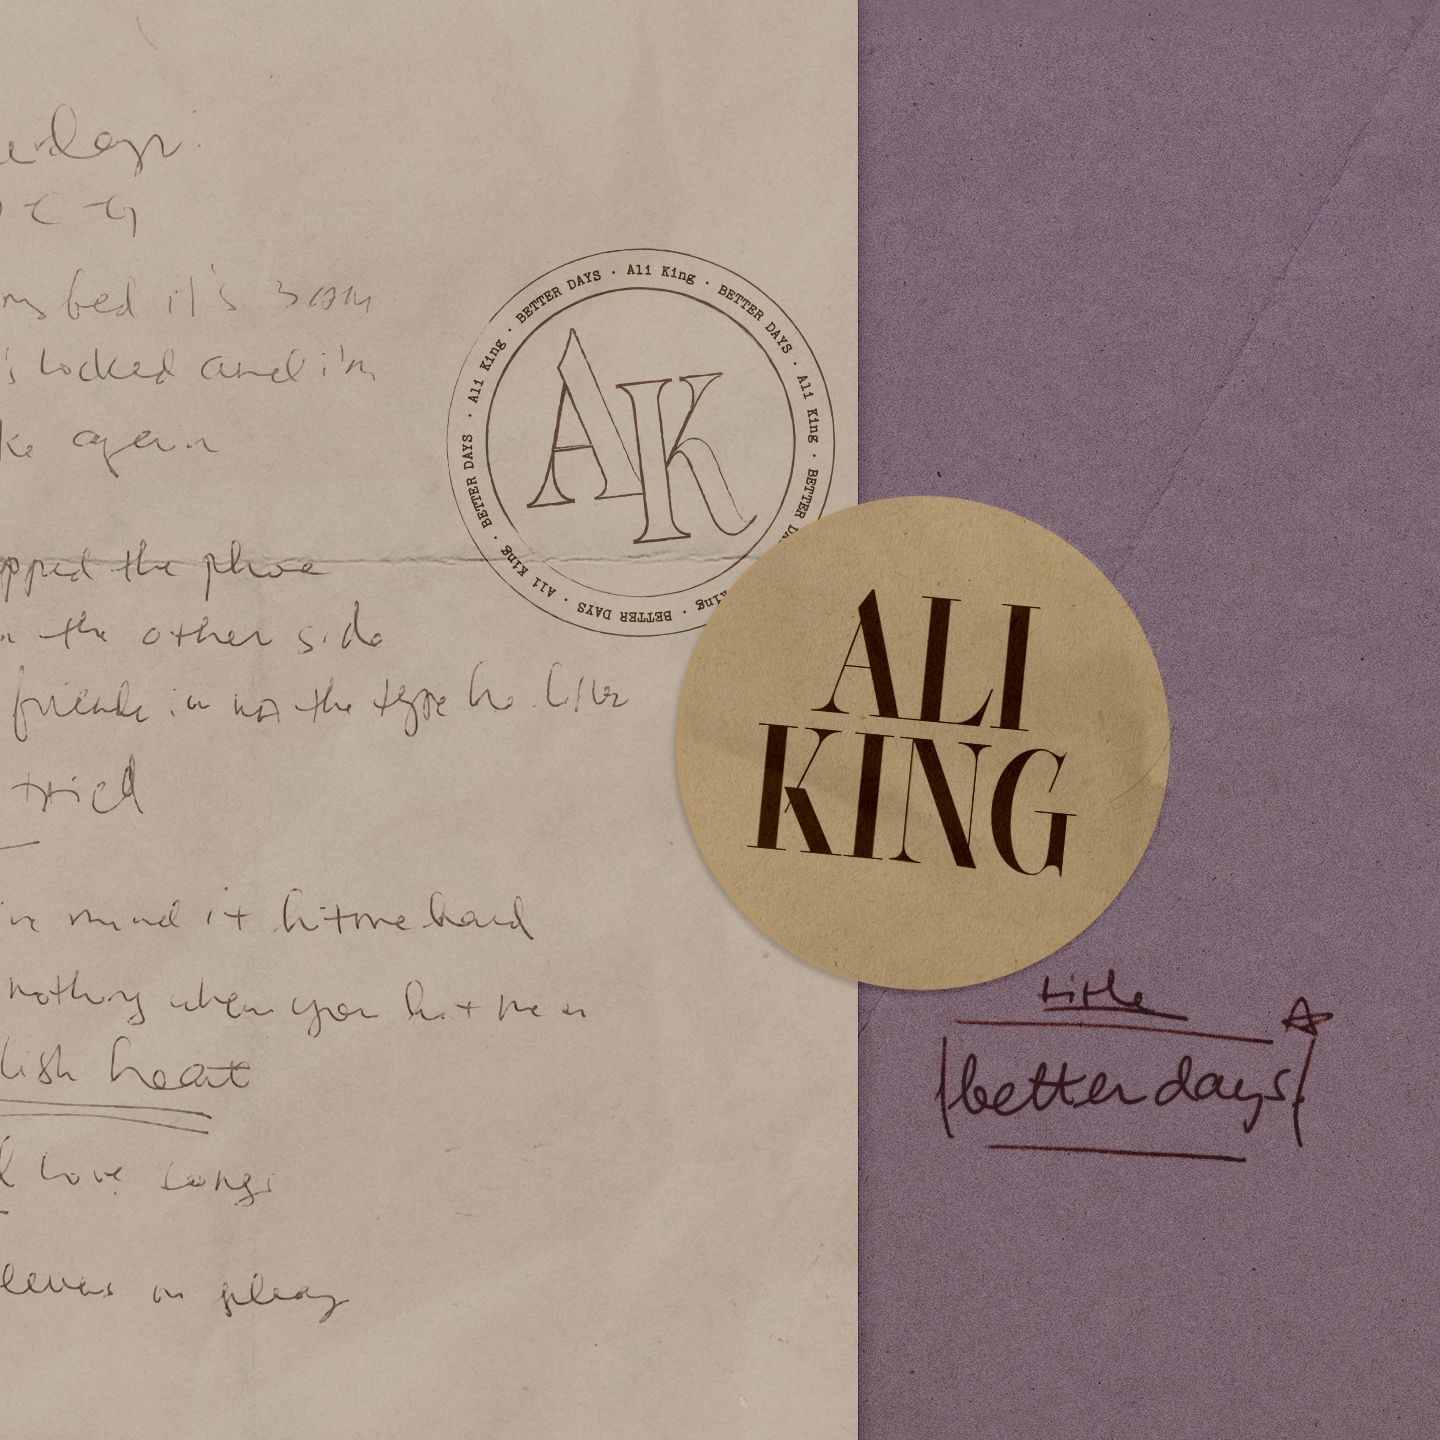 days
C G
my bed it's 3am
's locked and i'm
ke again
pped the phone
the other side
friends im not the type he likes
tried
mind it hit me hard
nothing when you hit me
lish heart
love songs
on play
BETTER DAYS · Ali King · BETTER DAYS · Ali King · BETTER DAYS · Ali King · BETTER DAYS · Ali King ·
AK
ALI
KING
title
better days